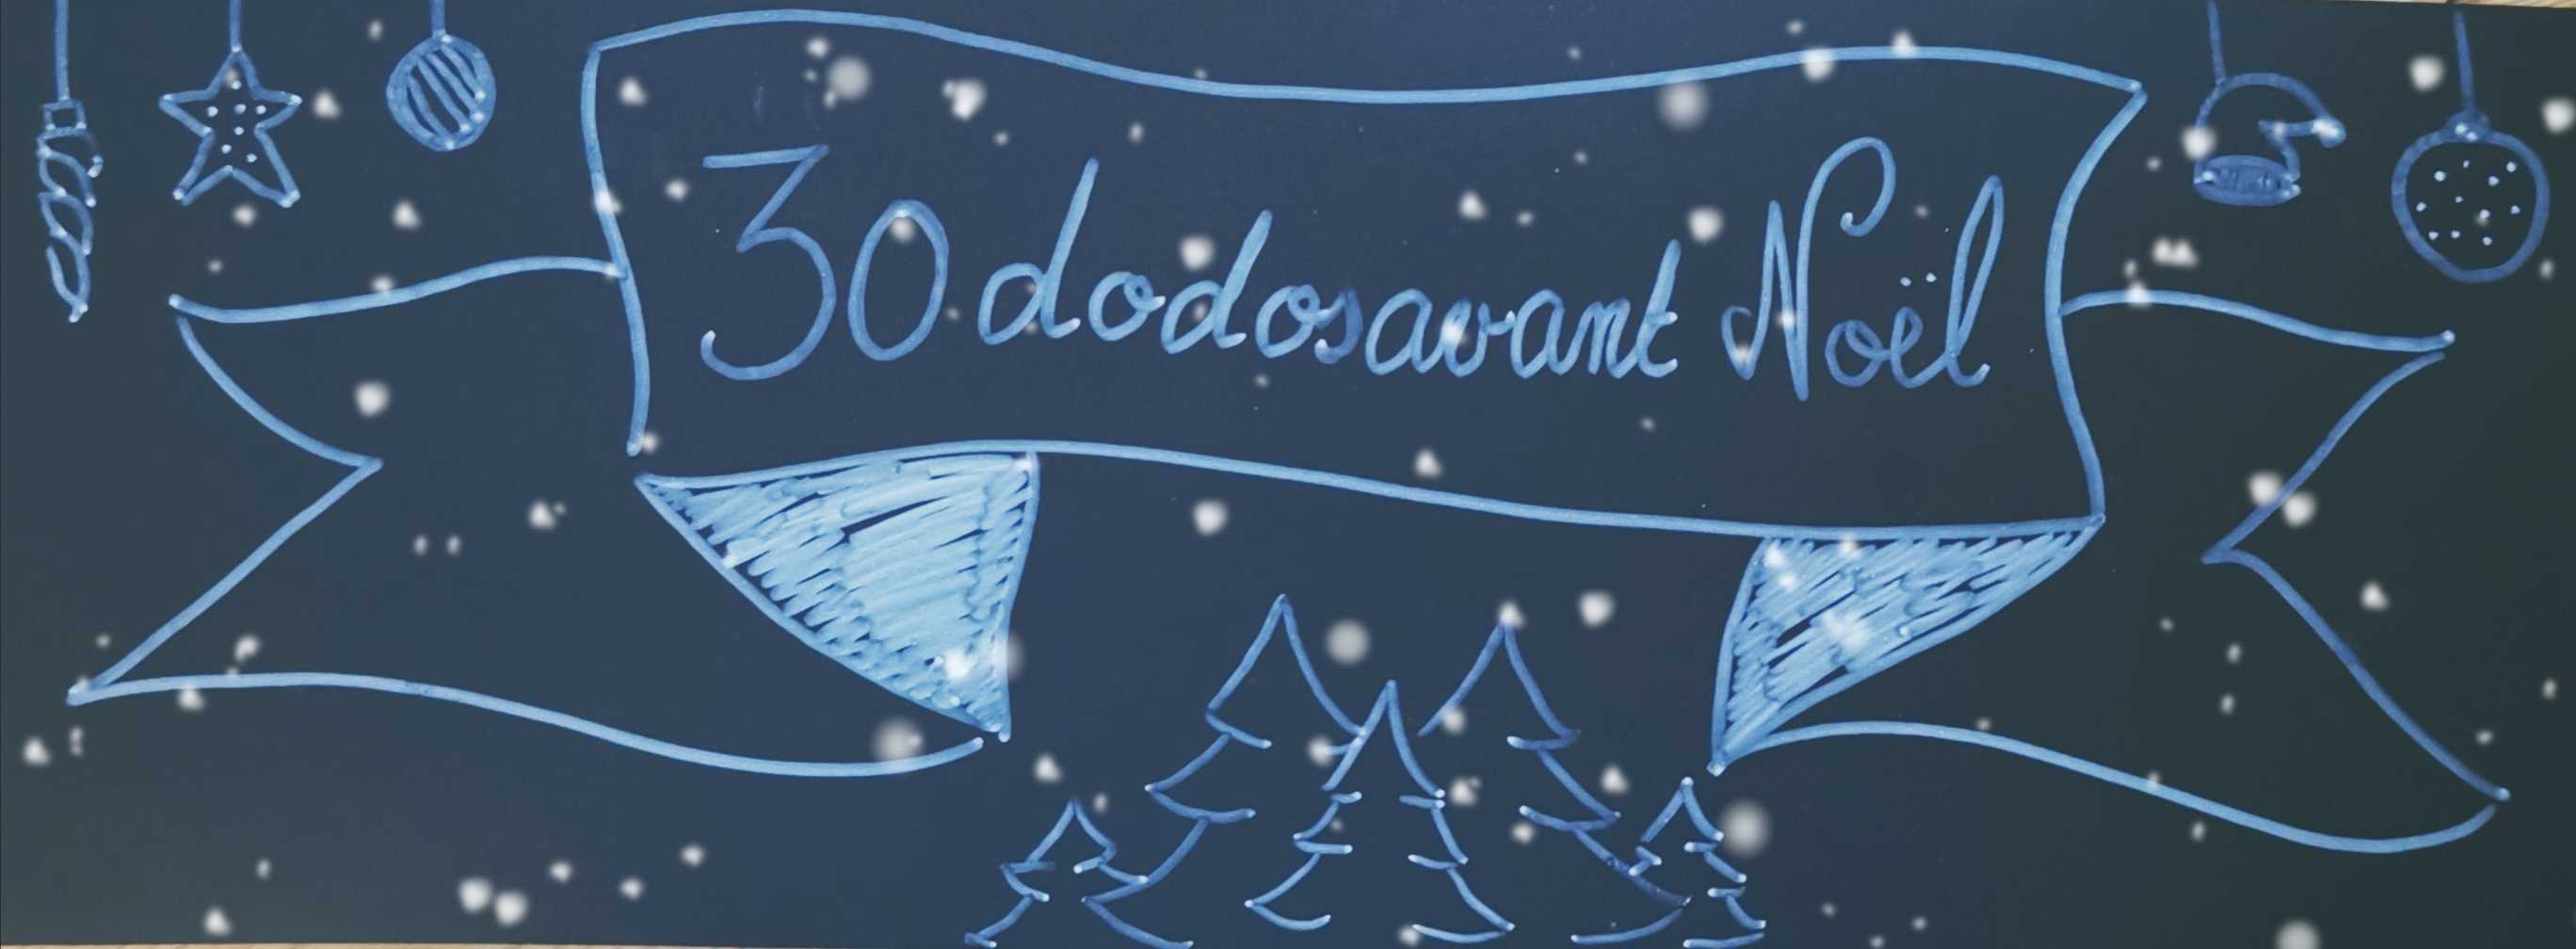 30 dodos avant Noël